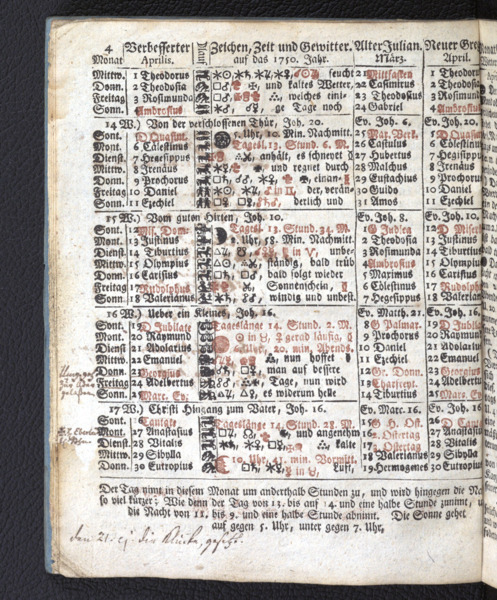 4 Verbesserter Zeichen, Zeit und Gewitter. Alter Julian. Neuer Gre
Monat Aprilis. auf das 1750. Jahr. März. April.
Mittw. 1 Theodorus feucht 21 Mittfasten 1 Theodor
Donn. 2 Theodosia und kaltes Wetter, 22 Casimirus 2 Theodosi
Freitag 3 Rosimunda welches eine 23 Theodorus 3 Rosimun
Sonn. 4 Ambrosius ge Tage noch 24 Gabriel 4 Ambrosi
14 W.) Von der verschlossenen Thür, Joh. 20. Ev. Joh. 6. Ev. Joh. 20.
Sont. 5 D Quasim. Uhr, 10. Min. Nachmitt. 25 Mar. Verk. D Quasim
Mont. 6 Cölestinus Tagesl. 13. Stund. 6. M. 26 Castulus 6 Cölestinu
Dienst. 7 Hegesippus anhält, es schneyet 27 Hubertus 7 Hegesipp
Mittw. 8 Irenäus und regnet durch 28 Malchus 8 Irenäus
Donn. 9 Prochorus einan- 29 Eustachius 9 Prochoru
Freitag 10 Daniel der, verän- 30 Guido 10 Daniel
Sonn. 11 Ezechiel derlich und 31 Amos 11 Ezechiel
15 W.) Vom guten Hirten, Joh. 10. Ev. Joh. 8. Ev. Joh. 10.
Sont. 12 Mis. Dom. Tagesl. 13. Stund. 34. M. 1 G Judica 12 D Miser
Mont. 13 Justinus Uhr, 58. Min. Nachmitt. 2 Theodosia 13 Justinus
Dienst. 14 Tiburtius unbe- 3 Rosimunda 14 Tiburtiu
Mittw. 15 Olympius ständig, bald trüb 4 Ambrosius 15 Olympiu
Donn. 16 Carisius bald folgt wieder 5 Maximus 16 Carisius
Freitag 17 Rudolphus Sonnenschein, 6 Cölestinus 17 Rudolph
Sonn. 18 Valerianus windig und unbest. 7 Hegesippus 18 Valerian
16 W.) Ueber ein Kleines, Joh. 16. Ev. Matth. 21. Ev. Joh. 16.
Sont. 19 D Jubilate Tageslänge 14. Stund. 2. M. 8 G Palmar. 19 D Jubila
Mont. 20 Raymund gerad läufig, 9 Prochorus 20 Raimun
Dienst 21 Adolarius Uhr, 20. min. Abends. 10 Daniel 21 Adolariu
Mittw. 22 Emanuel nun hoffet 11 Ezechiel 22 Emanuel
Donn. 23 Georgius man auf bessere 12 Gr. Donn. Georgius
Freitag 24 Adelbertus Tage, nun wird 13 Charfreyt. 24 Adelbert
Sonn. 25 Marc. Ev. es widerum helle 14 Tiburtius Marc. Ev
17 W.) Christi Hingang zum Vater, Joh. 16. Ev. Marc. 16. Ev. Joh. 16.
Sont. Cantate Tageslänge 14. Stund. 28. M. G H. Ost. D Canta
Mont. 27 Anastasius und angenehm 16 2. Ostertag 27 Anastasiu
Dienst. 28 Vitalis kalte 3. Ostertag 28 Vitalis
Mittw. 29 Sibylla 10. Uhr, 43. min. Vormitt. 18 Valerianus 29 Sibylla
Donn. 30 Eutropius Luft, 19 Hermogenes 30 Eutropius
Der Tag nimt in diesem Monat um anderthalb Stunden zu, und wird hingegen die Na
so viel kürzer: Wie denn der Tag von 13. bis auf 14. und eine halbe Stunde zunimt, u
die Nacht von 11. bis 9. und eine halbe Stunde abnimt. Die Sonne gehet
auf gegen 5. Uhr, unter gegen 7. Uhr,